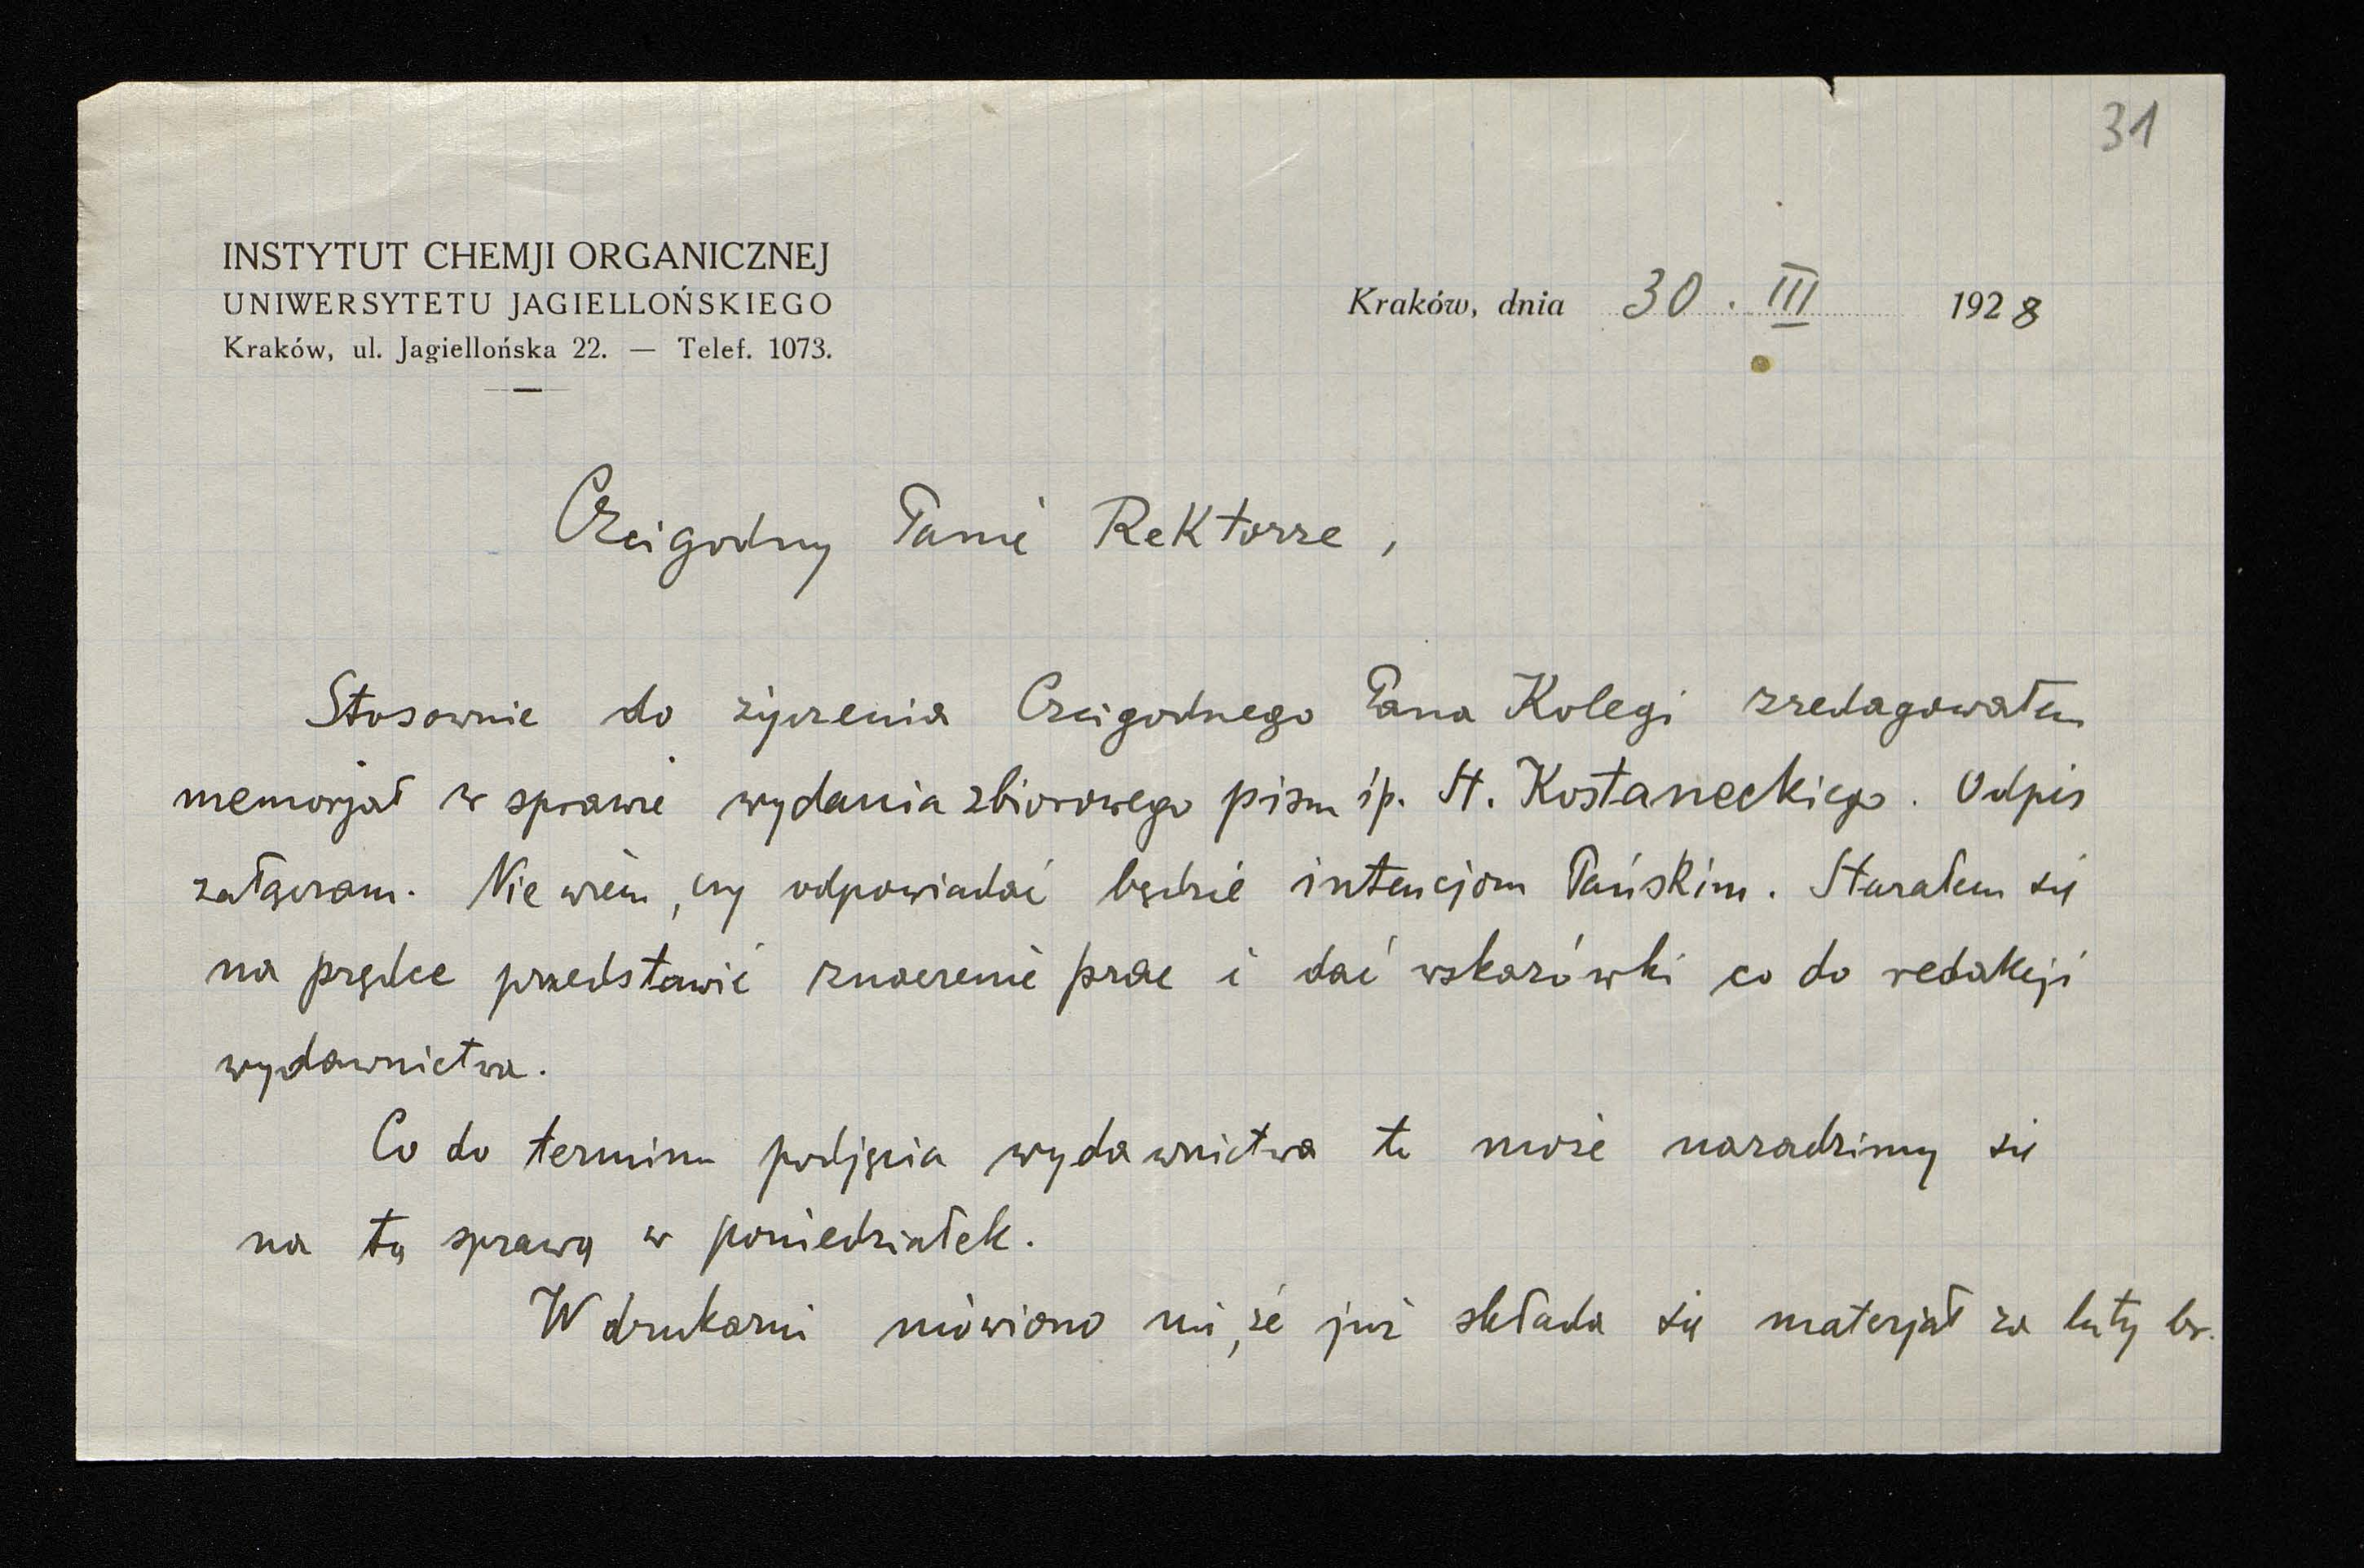 31
INSTYTUT CHEMJI ORGANICZNEJ
UNIWERSYTETU JAGIELLOŃSKIEGO
Kraków, ul. Jagiellońska 22. — Telef. 1073.
Kraków, dnia 30. III 1928
Czcigodny Panie Rektorze,
Stosownie do życzenia Czcigodnego Pana Kolegi zredagowałem
memorjał w sprawie wydania zbiorowego pism śp. St. Kostaneckiego. Odpis
załączam. Nie wiem, czy odpowiadać będzie intencjom Pańskim. Starałem się
na prędce przedstawić znaczenie prac i dać wskazówki co do redakcji
wydawnictwa.
Co do terminu podjęcia wydawnictwa to może naradzimy się
na tą sprawą w poniedziałek.
W drukarni mówiono mi, że już składa się materjał za luty br.